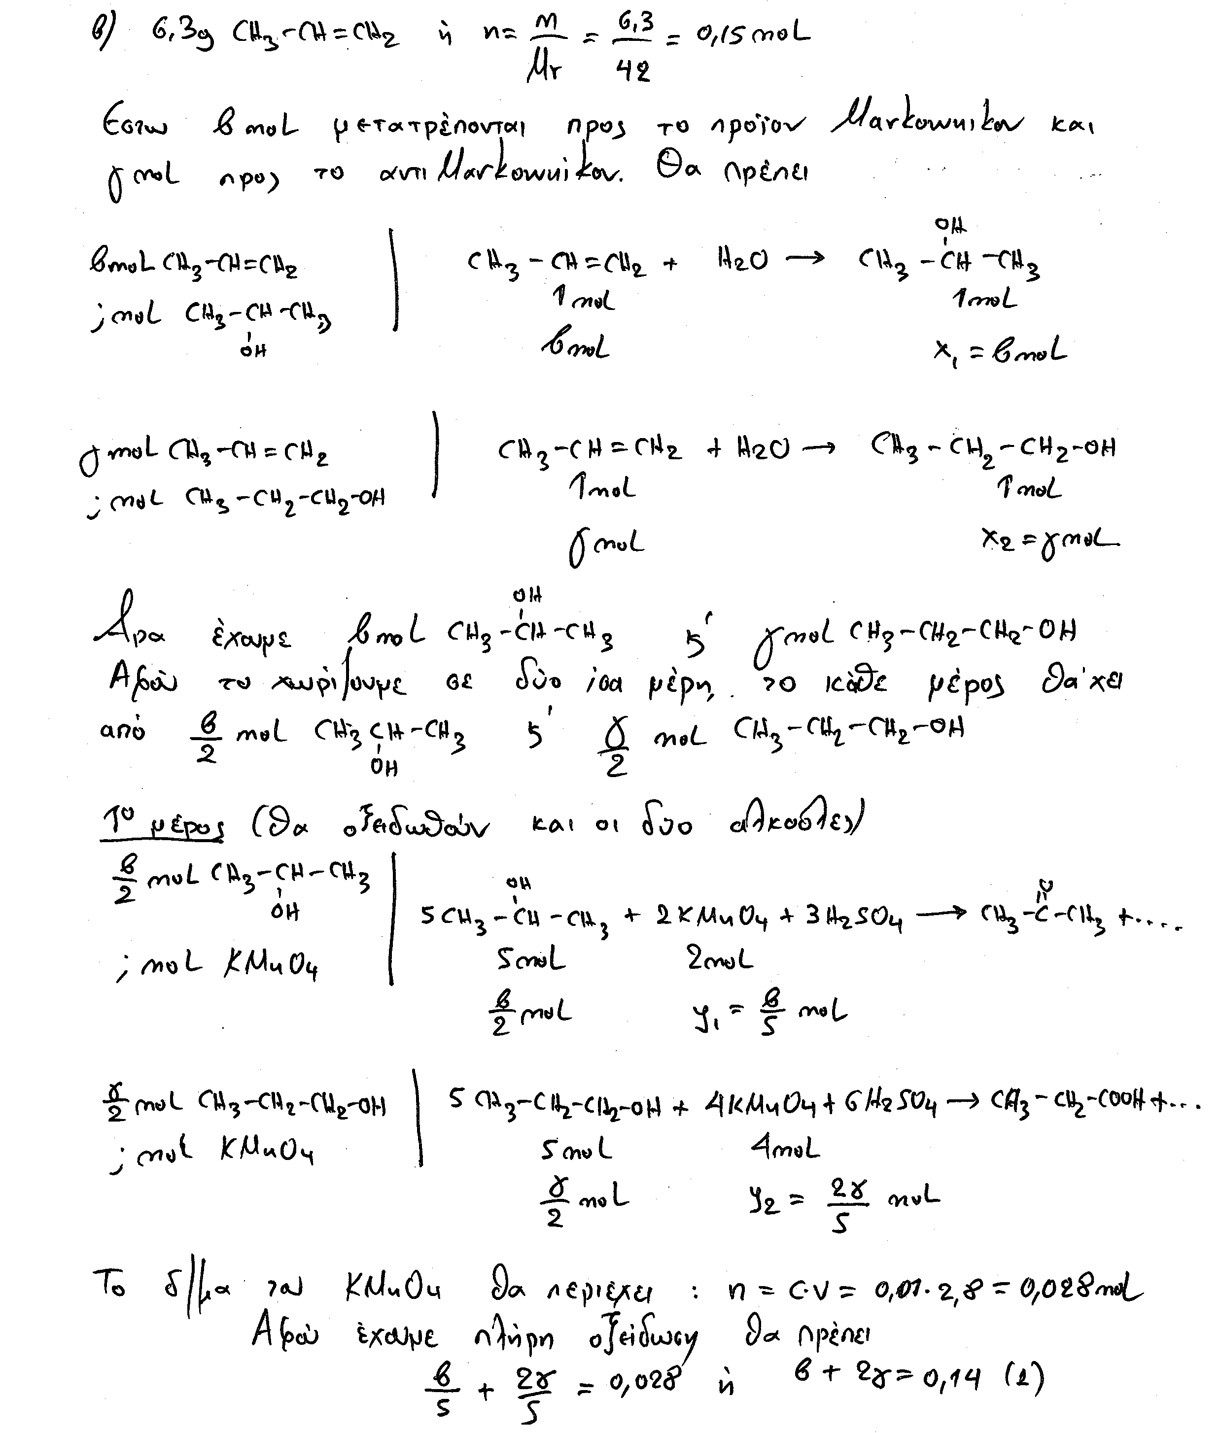 β) 6,3g CH3-CH=CH2 ή n= m/Mr = 6,3/42 = 0,15 mol
Έστω β mol μετατρέπονται προς το προϊον Markownikov και
γ mol προς το αντι Markownikov. Θα πρέπει
βmol CH3-CH=CH2 | CH3-CH=CH2 + H2O → CH3-CH(OH)-CH3
; mol CH3-CH(OH)-CH3 | 1mol 1mol
βmol x1 = βmol
γ mol CH3-CH=CH2 | CH3-CH=CH2 + H2O → CH3-CH2-CH2-OH
; mol CH3-CH2-CH2-OH | 1mol 1mol
γ mol x2 = γ mol
Άρα έχουμε βmol CH3-CH(OH)-CH3 ϗ γmol CH3-CH2-CH2-OH
Αφού το χωρίζουμε σε δύο ίσα μέρη, το κάθε μέρος θα 'χει
από β/2 mol CH3CH(OH)-CH3 ϗ γ/2 mol CH3-CH2-CH2-OH
1ο μέρος (Θα οξειδωθούν και οι δυο αλκοόλες)
β/2 mol CH3-CH(OH)-CH3 | 5CH3-CH(OH)-CH3 + 2KMnO4 + 3H2SO4 → CH3-C(=O)-CH3 +....
; mol KMnO4 | 5mol 2mol
β/2 mol y1 = β/5 mol
γ/2 mol CH3-CH2-CH2-OH | 5 CH3-CH2-CH2-OH + 4KMnO4 + 6H2SO4 → CH3-CH2-COOH +...
; mol KMnO4 | 5mol 4mol
γ/2 mol y2 = 2γ/5 mol
Το δ//μα του KMnO4 θα περιέχει : n = C·V = 0,01·2,8 = 0,028 mol
Αφού έχουμε πλήρη οξείδωση θα πρέπει
β/5 + 2γ/5 = 0,028 ή β + 2γ = 0,14 (1)